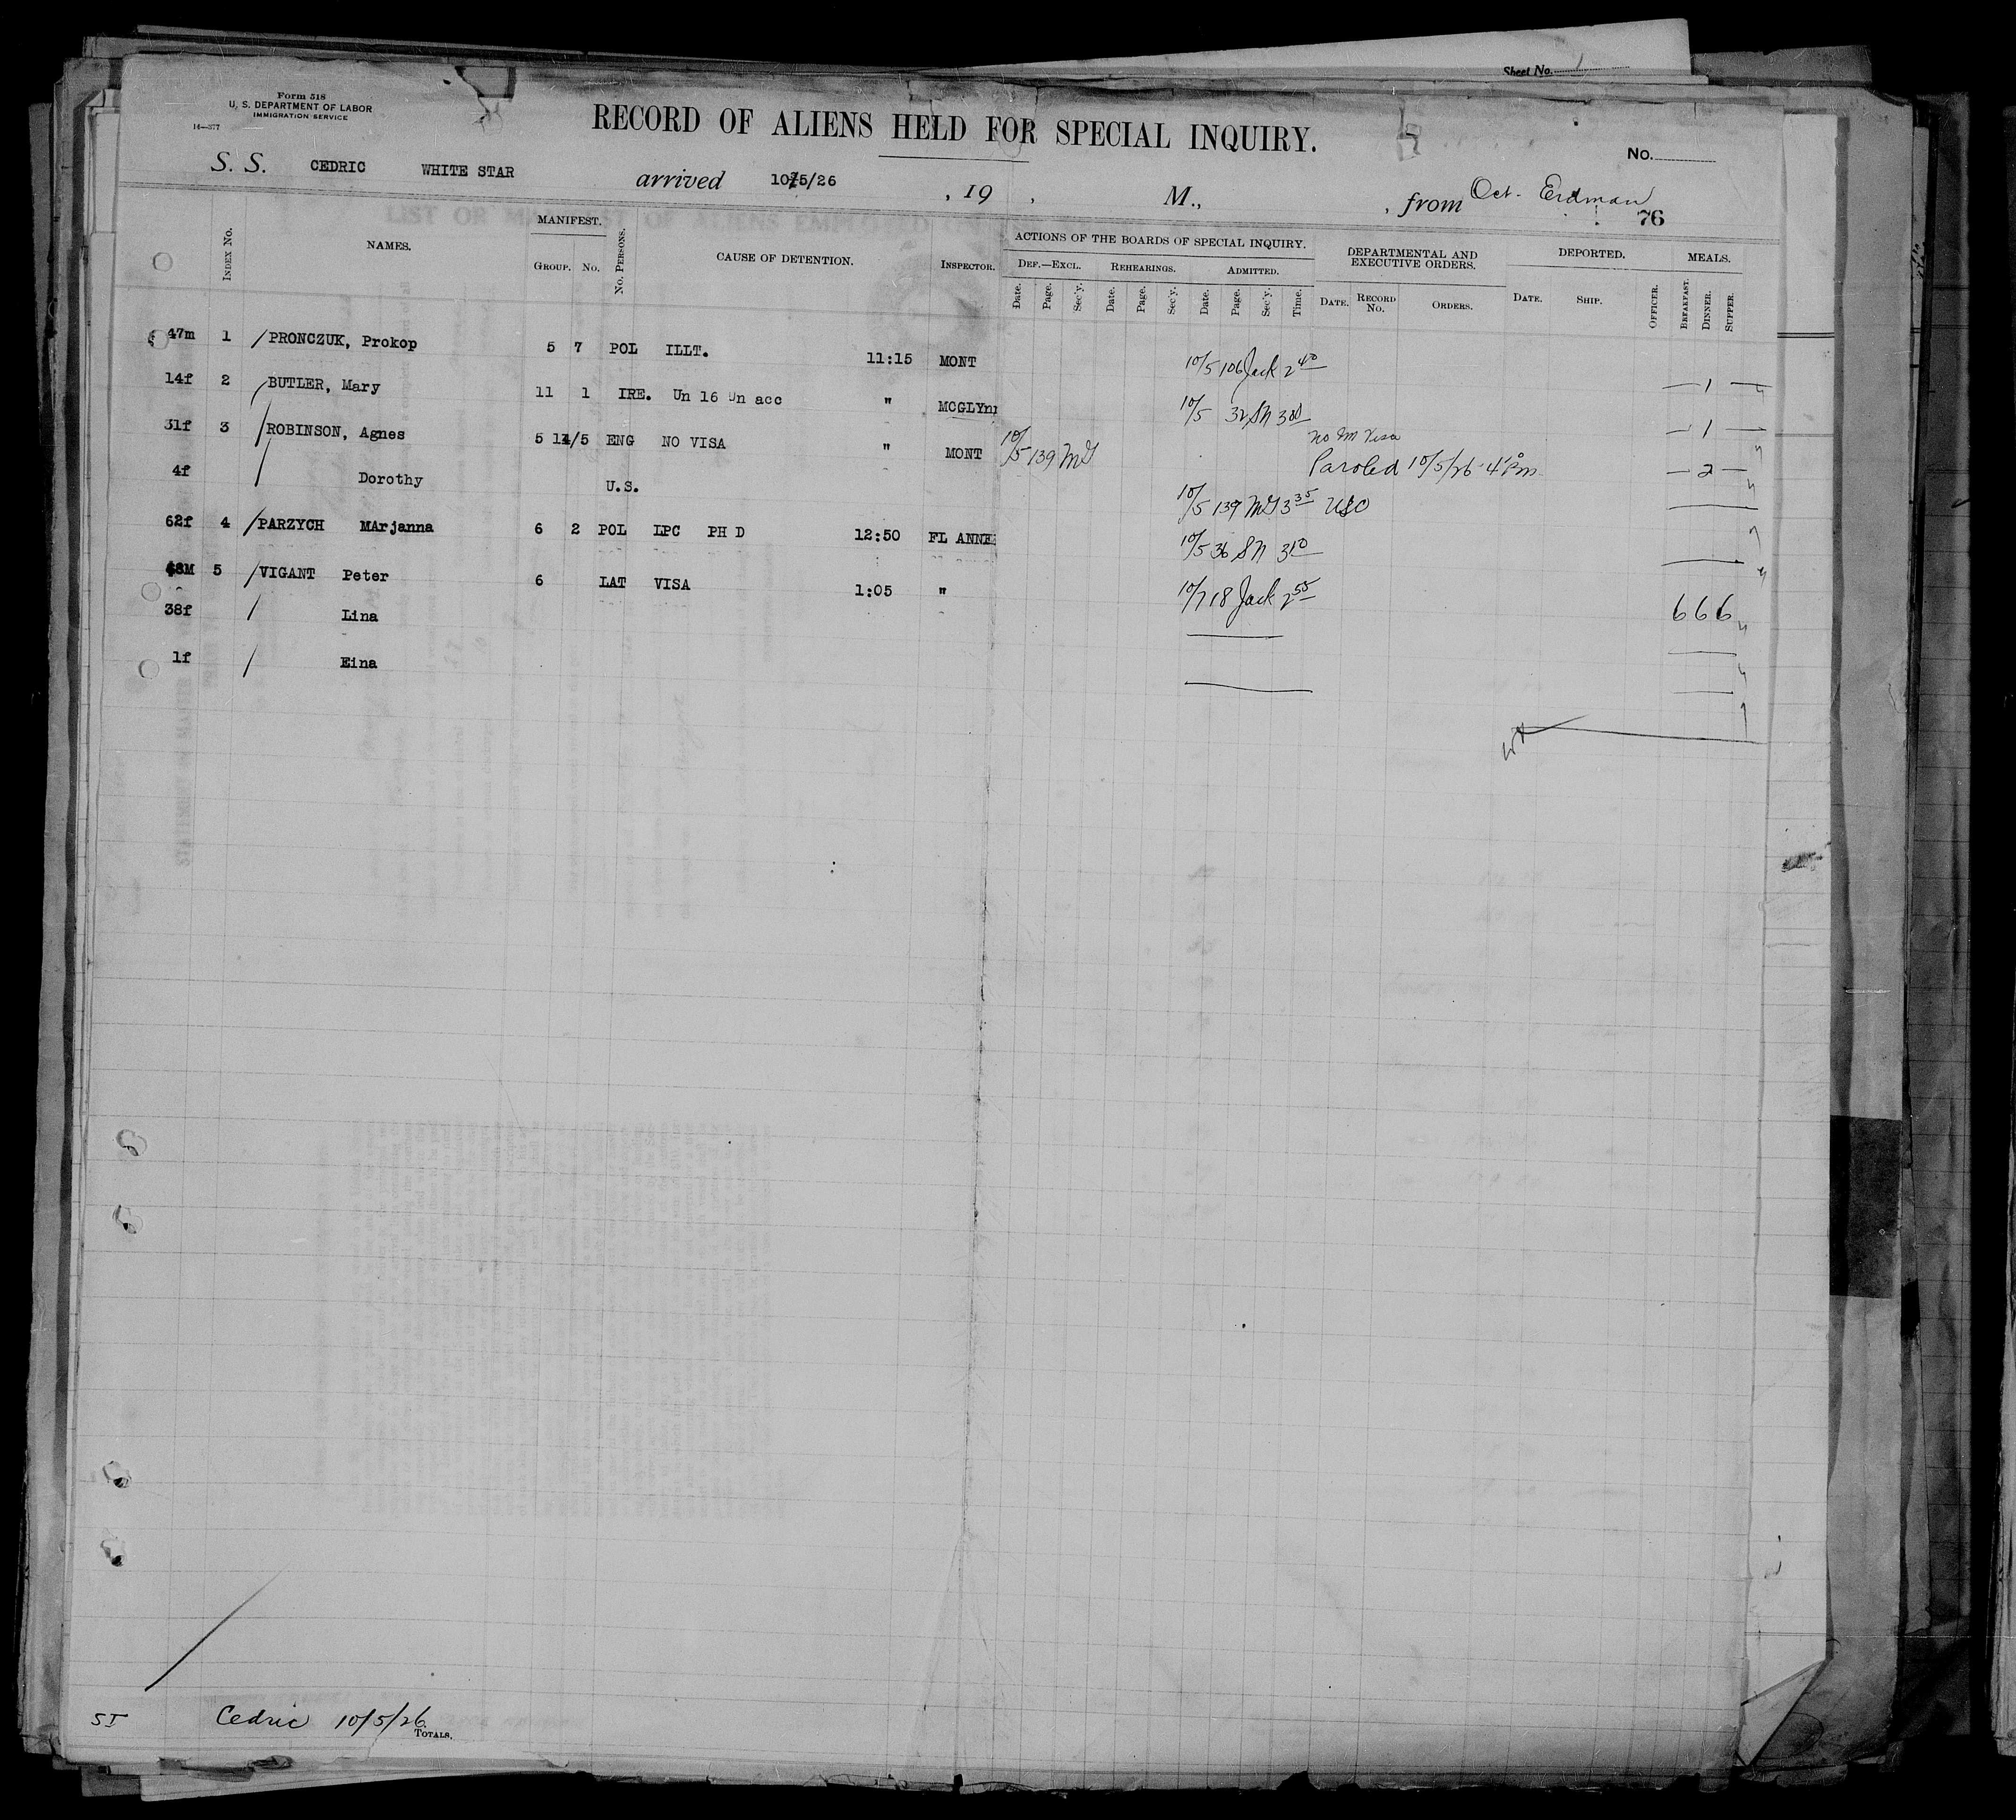 Sheet No. 1
Form 518
U. S. DEPARTMENT OF LABOR
IMMIGRATION SERVICE
16—377
RECORD OF ALIENS HELD FOR SPECIAL INQUIRY.
No.
S. S. CEDRIC WHITE STAR arrived 10/5/26 , 19 , M., , from Oct- Erdman
76
LIST OR MANIFEST OF ALIENS EMPLOYED ON
INDEX No. NAMES. MANIFEST. GROUP. No. No. PERSONS. CAUSE OF DETENTION. INSPECTOR.
ACTIONS OF THE BOARDS OF SPECIAL INQUIRY. DEPARTMENTAL AND EXECUTIVE ORDERS. DEPORTED. MEALS.
DEF.—EXCL. REHEARINGS. ADMITTED.
Date. Page. Sec'y. Date. Page. Sec'y. Date. Page. Sec'y. Time. DATE. RECORD No. ORDERS. DATE. SHIP. OFFICER. BREAKFAST. DINNER. SUPPER.
47m 1 / PRONCZUK, Prokop 5 7 POL ILLT. 11:15 MONT 10/5 106 Jack 2 40 — 1 —
14f 2 / BUTLER, Mary 11 1 IRE. Un 16 Un acc " MCGLYnn 10/5 32 SN 3 00 — 1 —
31f 3 / ROBINSON, Agnes 5 14/5 ENG NO VISA " MONT 10/5 139 McG No Im Visa Paroled 10/5/26 4 Pm — 2 —
4f / Dorothy U.S. 10/5 139 McG 3 35 USC
62f 4 / PARZYCH MArjanna 6 2 POL LPC PH D 12:50 FL ANNE 10/5 36 SN 3 10
48M 5 / VIGANT Peter 6 LAT VISA 1:05 " 10/7 18 Jack 2 55 6 6 6
38f / Lina
1f / Eina
SI Cedric 10/5/26
TOTALS.